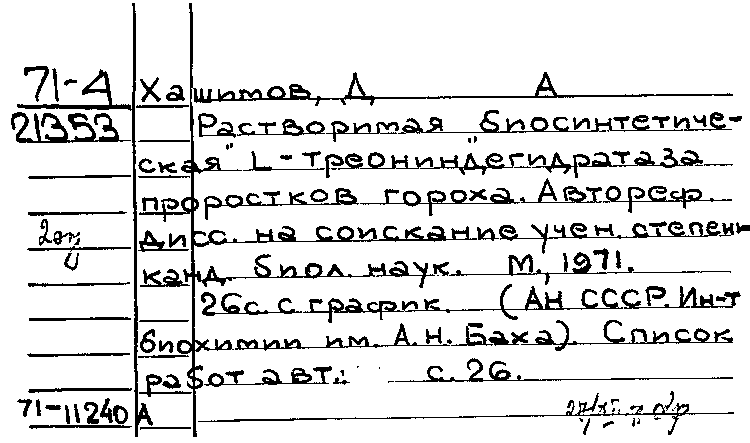 71-4 Хашимов, Д А
21353 Растворимая "биосинтетиче-
ская" L-треониндегидратаза
проростков гороха. Автореф.
дисс. на соискание учен. степени
канд. биол. наук. М., 1971.
26с. с график. (АН СССР. Ин-т
биохимии им. А.Н. Баха). Список
работ авт.: с. 26.
71-11240 А